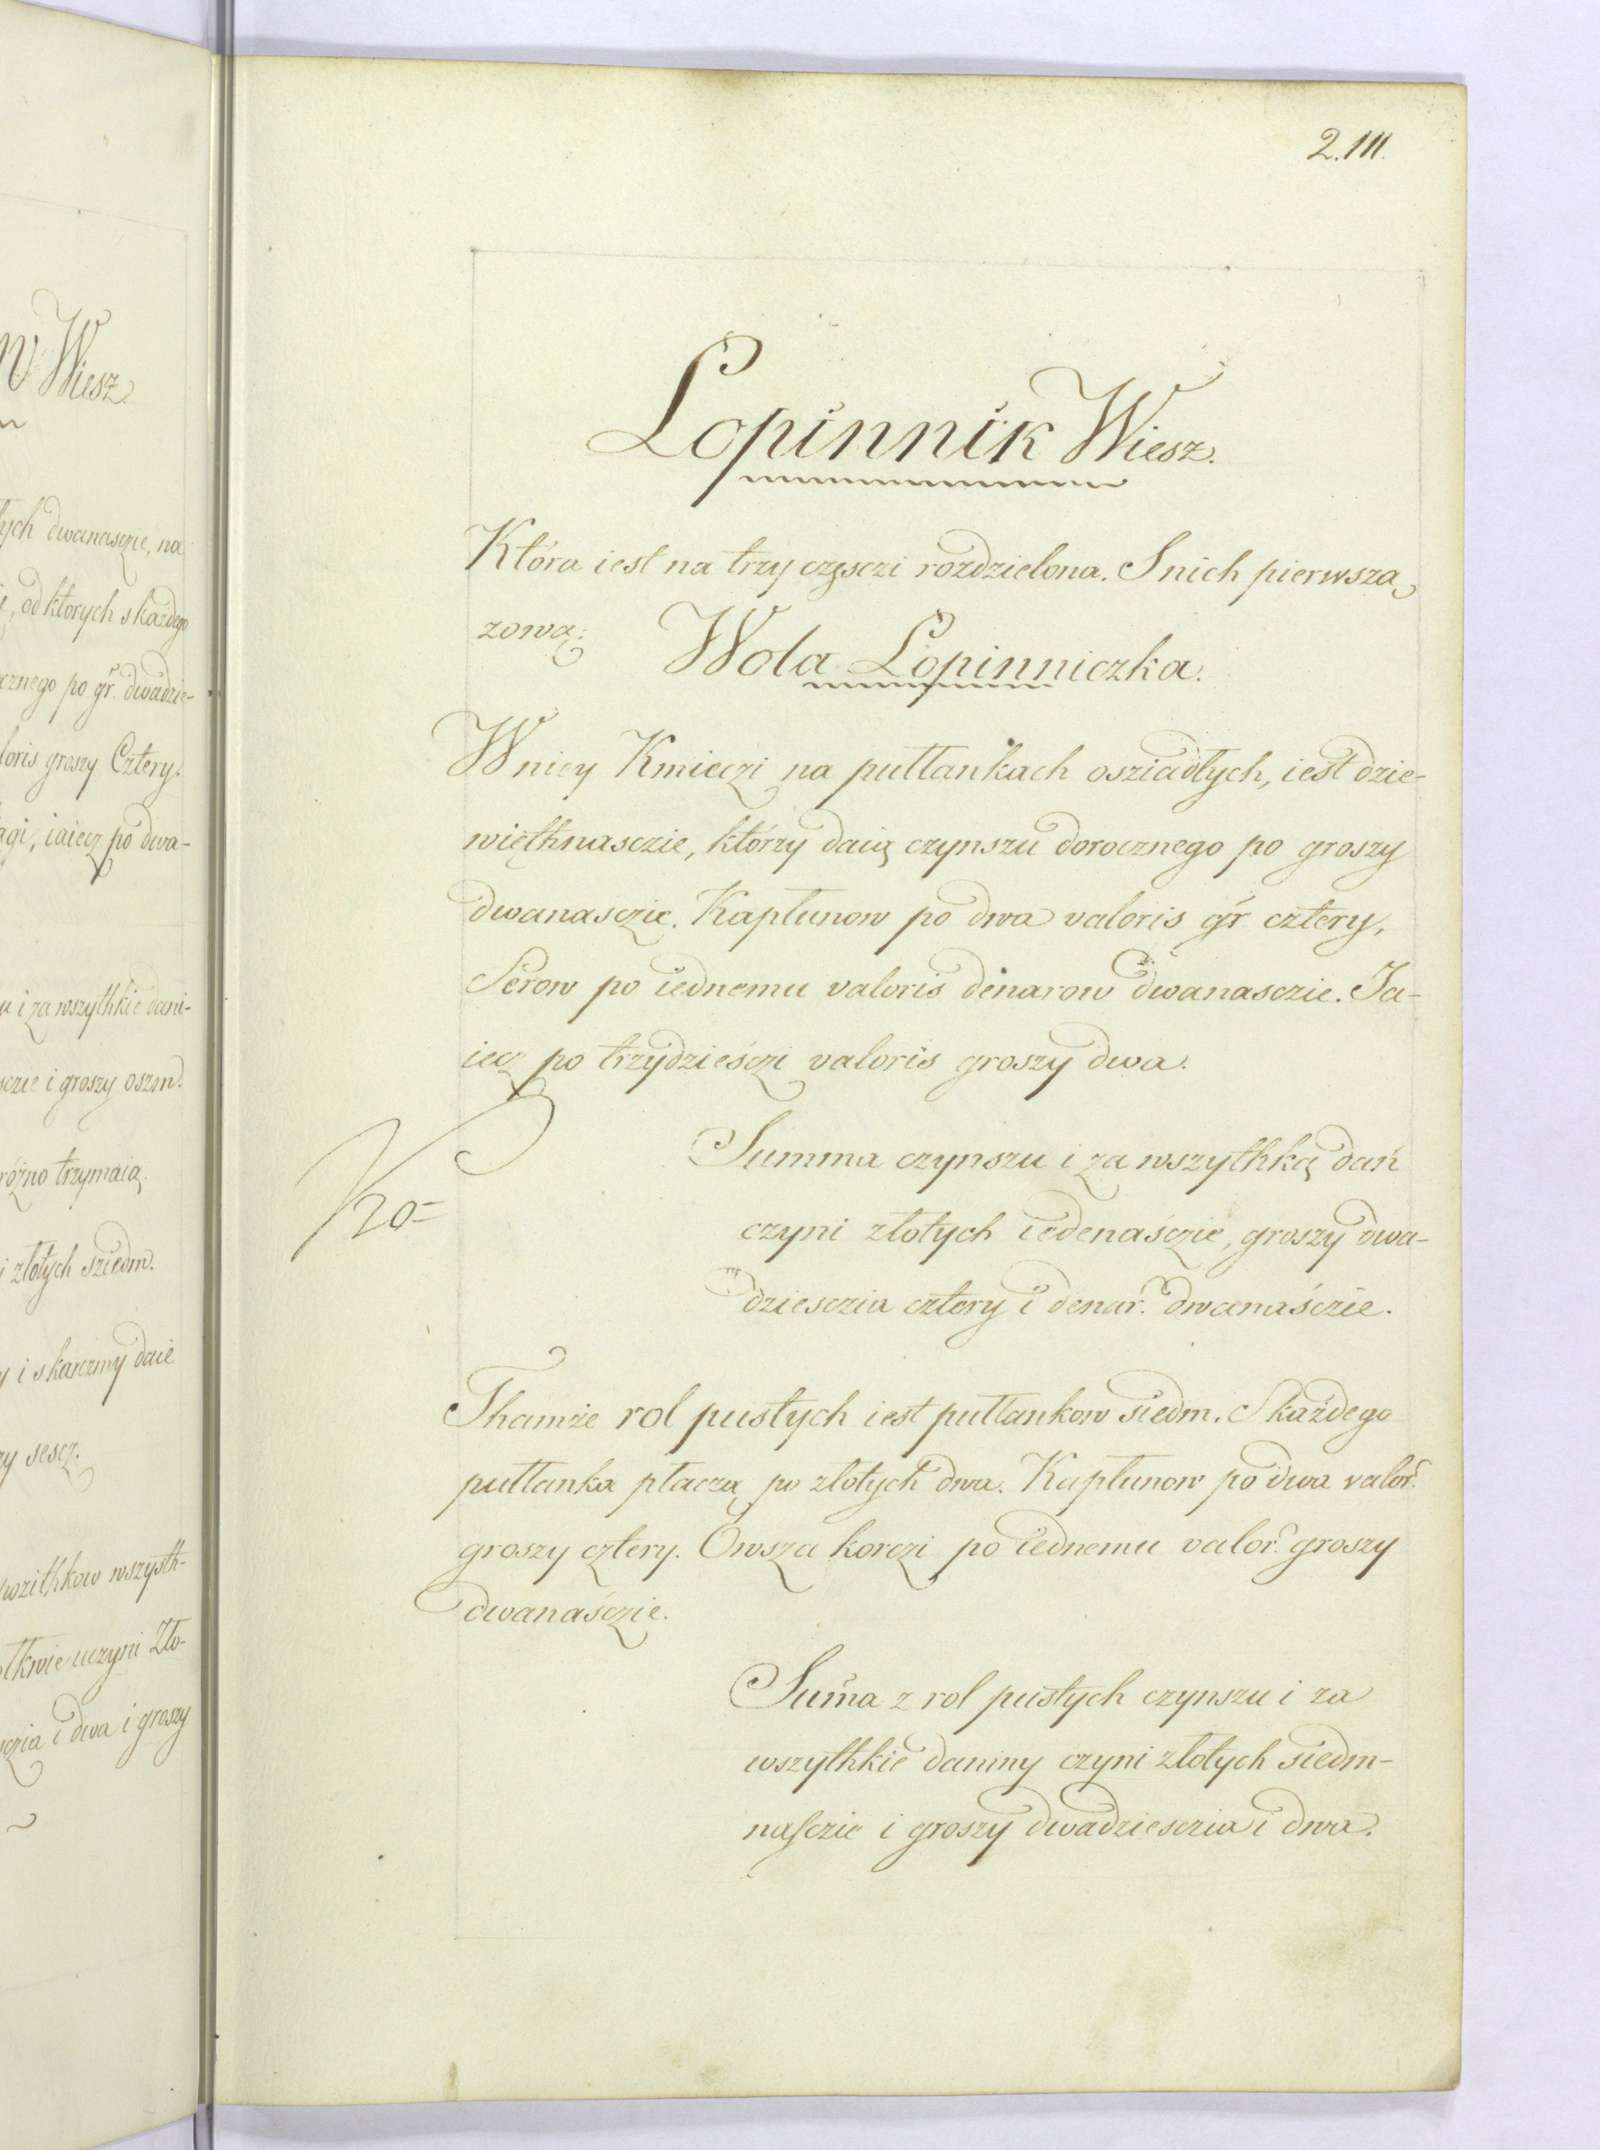 W Wiesz.
łych dwanasczie, na
i, od których s każdego
cznego po gr. dwadzie-
loris groszy Cztery.
agi, iaiecz po dwa-
u i za wszythkie dani-
sczie i groszy oszm.
różno trzymaią.
i złotych sziedm.
y i s karczmy daie
zy sescz.
pozithkow wszysth-
łkwie uczyni Zło-
sczia i dwa i groszy
2.111.
Lopinnik Wiesz.
Która iest na trzy częsczi rozdzielona. S nich pierwszą
zową:
Wola Lopinniczka.
W niey Kmieczi na puttankach osziadłych, iest dzie-
więthnasczie, którzy daią czynszu dorocznego po groszy
dwanasczie. Kapłunow po dwa valoris gr. cztery,
Serow po iednemu valoris denarow dwanasczie. Ja-
iecz po trzydzieśczi valoris groszy dwa.
Summa czynszu i za wszythką dań
czyni złotych iedenaśczie, groszy dwa-
dziesczia cztery i denar. dwanaśczie.
Thamże rol pustych iest puttankow siedm. S każdego
puttanka płaczą po złotych dwa. Kapłunow po dwa valor.
groszy cztery. Owsza korczi po iednemu valor. groszy
dwanaśczie.
Suma z rol pustych czynszu i za
wszythkie daniny czyni złotych siedm-
nasczie i groszy dwadziesczia i dwa.